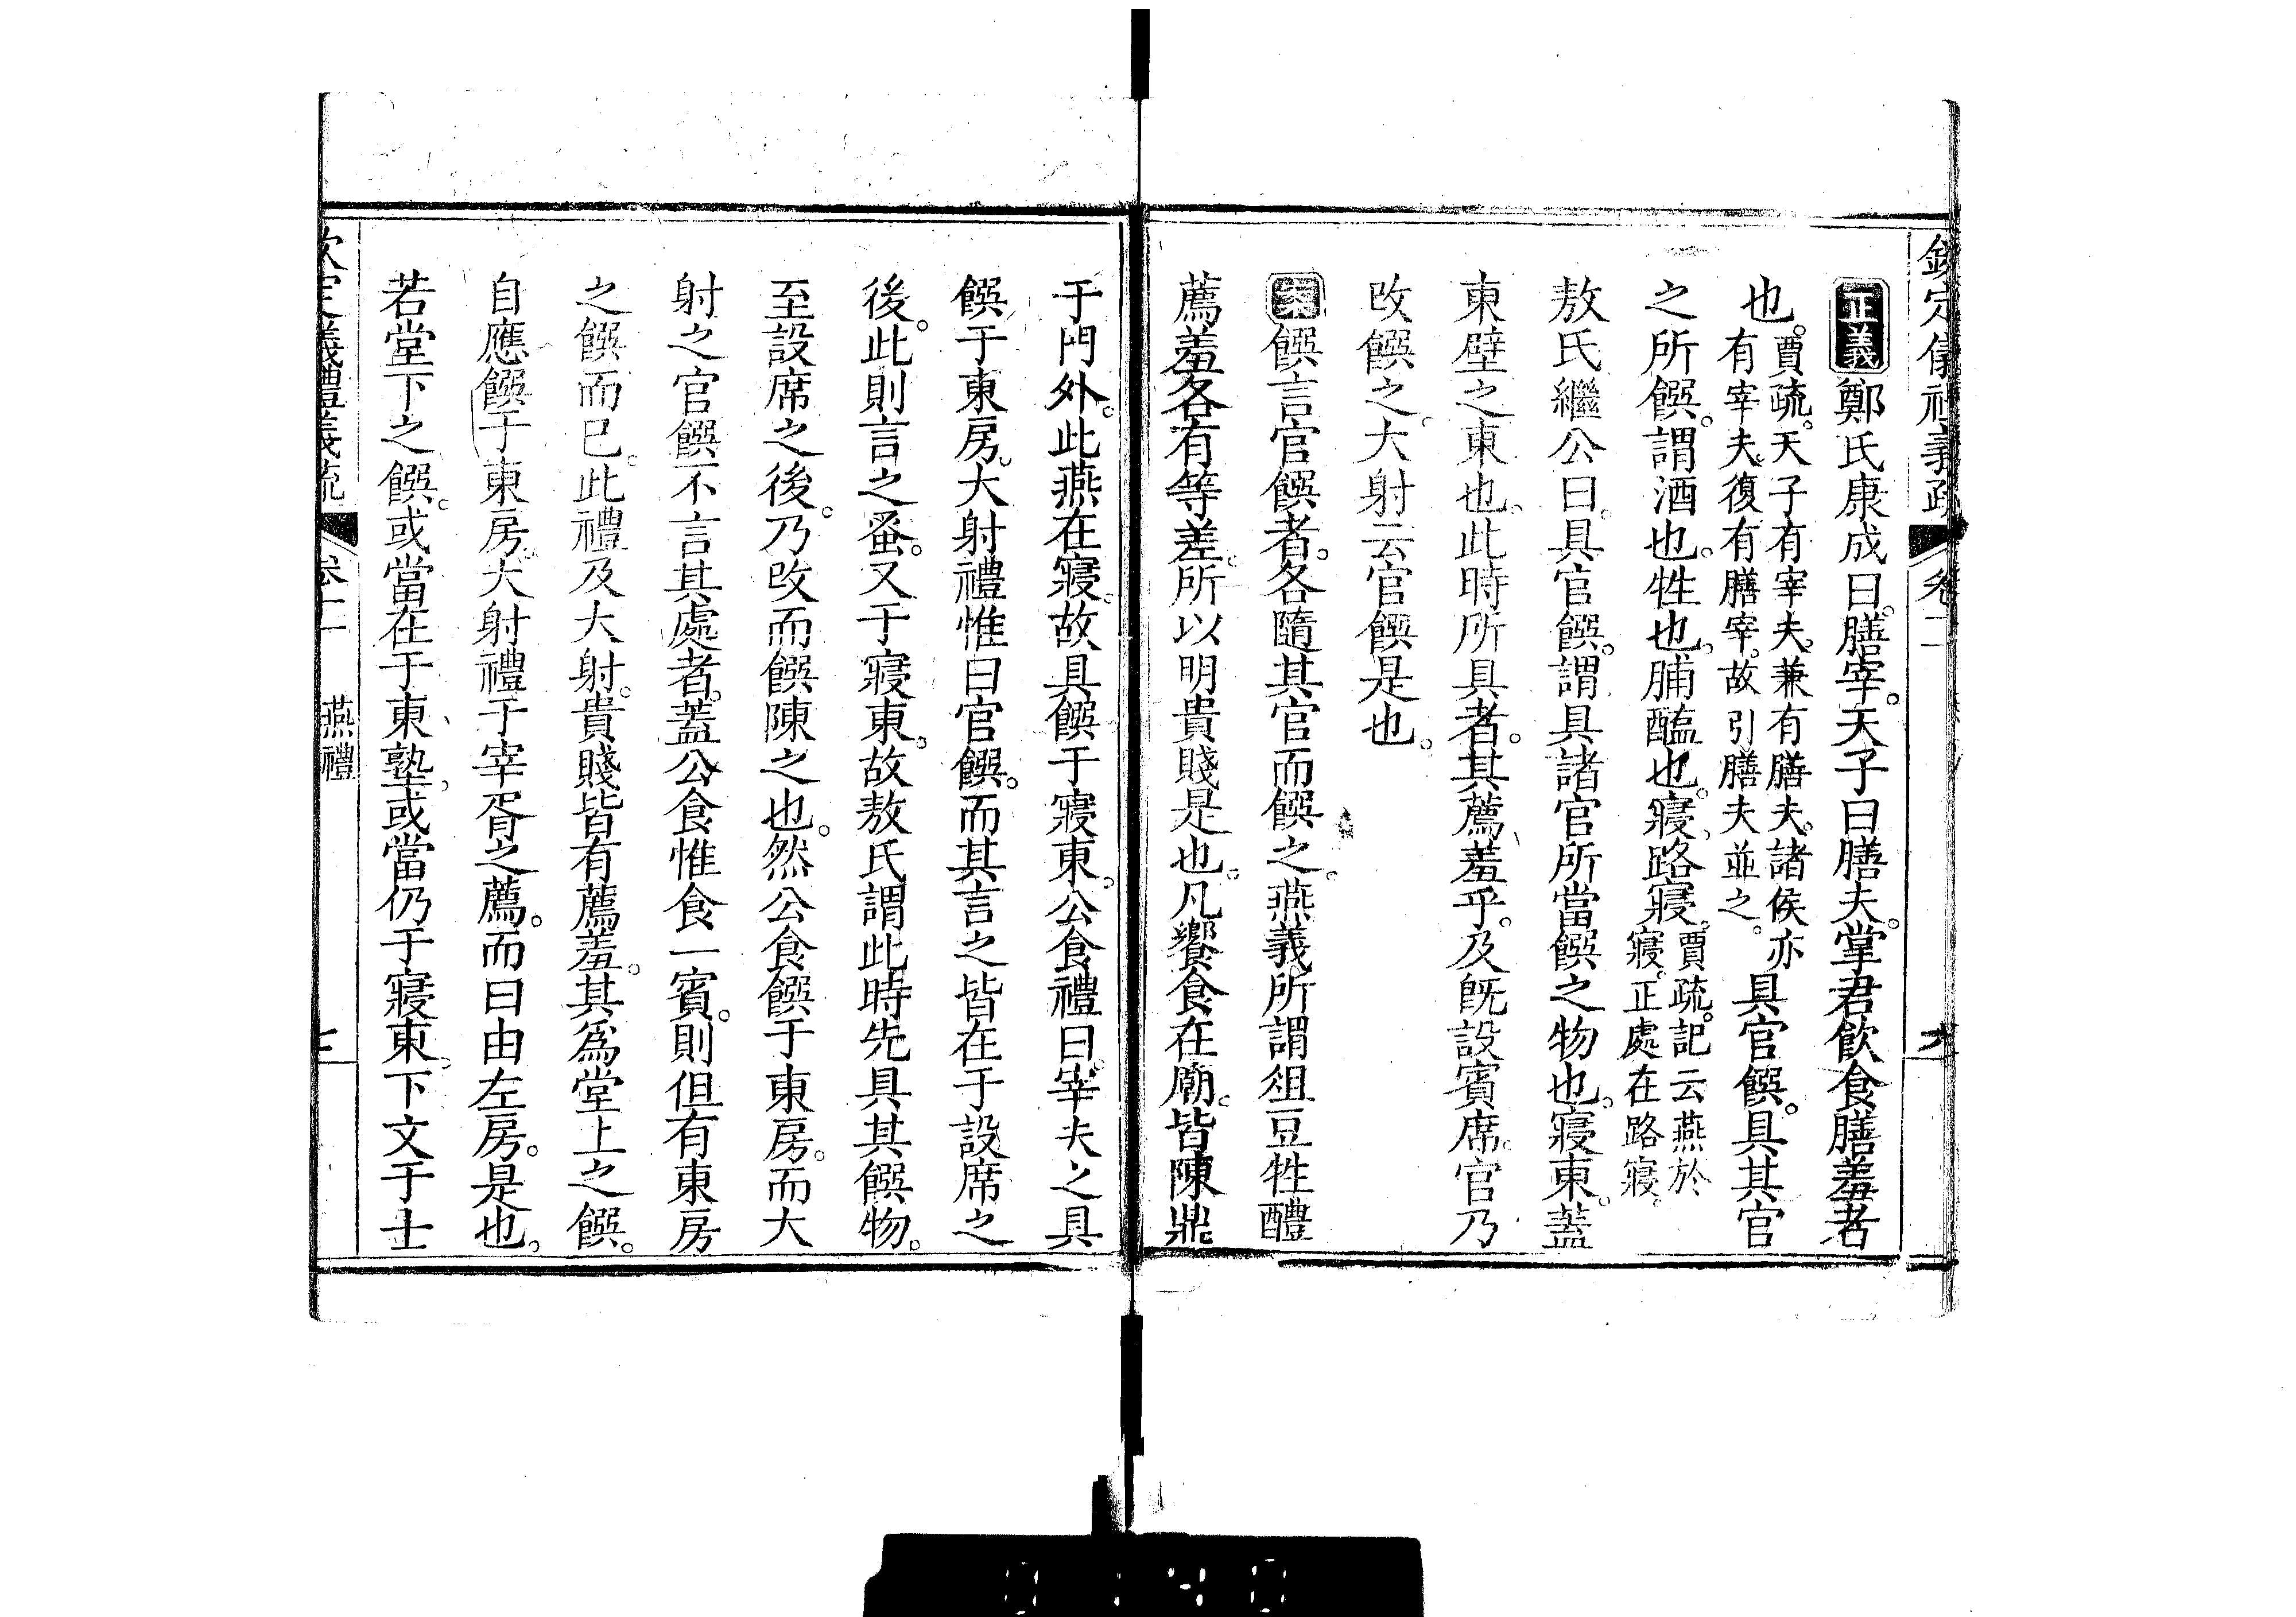 欽定儀禮義疏 卷十二
正義鄭氏康成曰。膳宰。天子曰膳夫。掌君飲食膳羞者
也。賈疏。天子有宰夫。兼有膳夫。諸侯亦有宰夫。復有膳宰。故引膳夫並之。具官饌。具其官
之所饌。謂酒也。牲也。脯醢也。寢。路寢。賈疏。記云燕於寢。正處在路寢。
敖氏繼公曰。具官饌。謂具諸官所當饌之物也。寢東。蓋
東壁之東也。此時所具者。其薦羞乎。及旣設賓席。官乃
改饌之。大射云官饌是也。
案饌言官饌者。各隨其官而饌之。燕義。所謂俎豆牲醴
薦羞各有等差。所以明貴賤是也。凡饗食在廟。皆陳鼎
于門外。此燕在寢。故具饌于寢東。公食禮曰。宰夫之具
饌于東房。大射禮惟曰官饌。而其言之皆在于設席之
後。此則言之蚤。又于寢東。故敖氏謂此時先具其饌物。
至設席之後。乃改而饌陳之也。然公食饌于東房。而大
射之官饌不言其處者。蓋公食惟食一賓。則但有東房
之饌而已。此禮及大射。貴賤皆有薦羞。其爲堂上之饌。
自應饌于東房。大射禮于宰胥之薦。而曰由左房。是也。
若堂下之饌。或當在于東塾。或當仍于寢東。下文于士
欽定儀禮義疏 卷十二 燕禮
0140